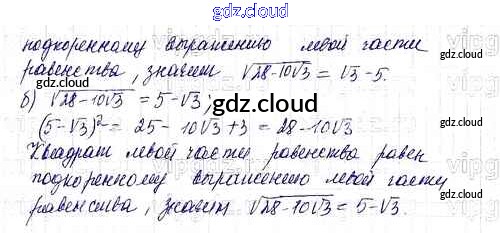 gdz.cloud
подкоренному выражению левой части
gdz.cloud
равенства, значит √28-10√3 = √3-5.
б) √28-10√3 = 5-√3;
gdz.cloud
(5-√3)² = 25 - 10√3 + 3 = 28-10√3
Квадрат левой части равенства равен
подкоренному выражению левой части
gdz.cloud
gdz.cloud
равенства, значит √28-10√3 = 5-√3.